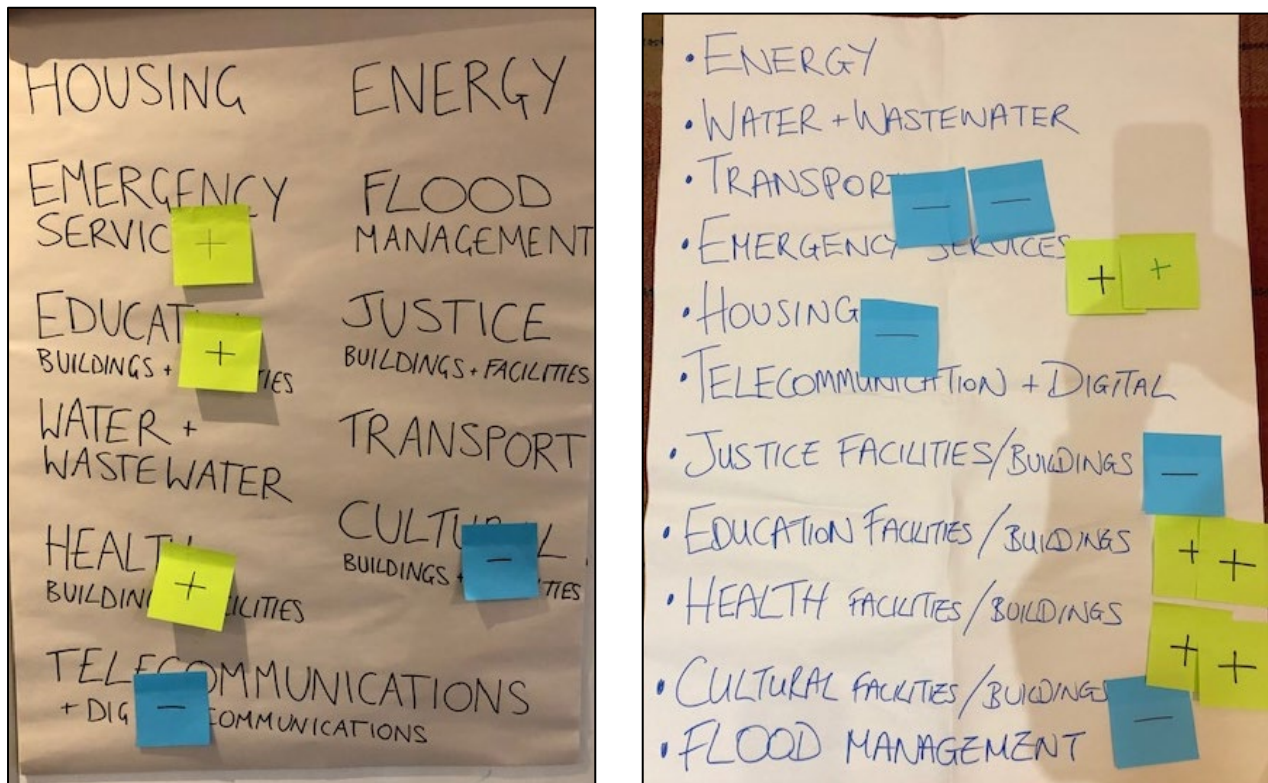 HOUSING
EMERGENCY
SERVIC
+
EDUCAT
+
BUILDINGS + IES
WATER +
WASTEWATER
HEALTH
BUILDIN ILITIES
+
TELECOMMUNICATIONS
+ DIG COMMUNICATIONS
−
ENERGY
FLOOD
MANAGEMENT
JUSTICE
BUILDINGS + FACILITIES
TRANSPORT
CULTURAL
BUILDINGS + ITIES
−
• ENERGY
• WATER + WASTEWATER
• TRANSPORT − −
• EMERGENCY SERVICES + +
• HOUSING −
• TELECOMMUNICATION + DIGITAL
• JUSTICE FACILITIES/BUILDINGS −
• EDUCATION FACILITIES/BUILDINGS + +
• HEALTH FACILITIES/BUILDINGS + +
• CULTURAL FACILITIES/BUILDINGS −
• FLOOD MANAGEMENT